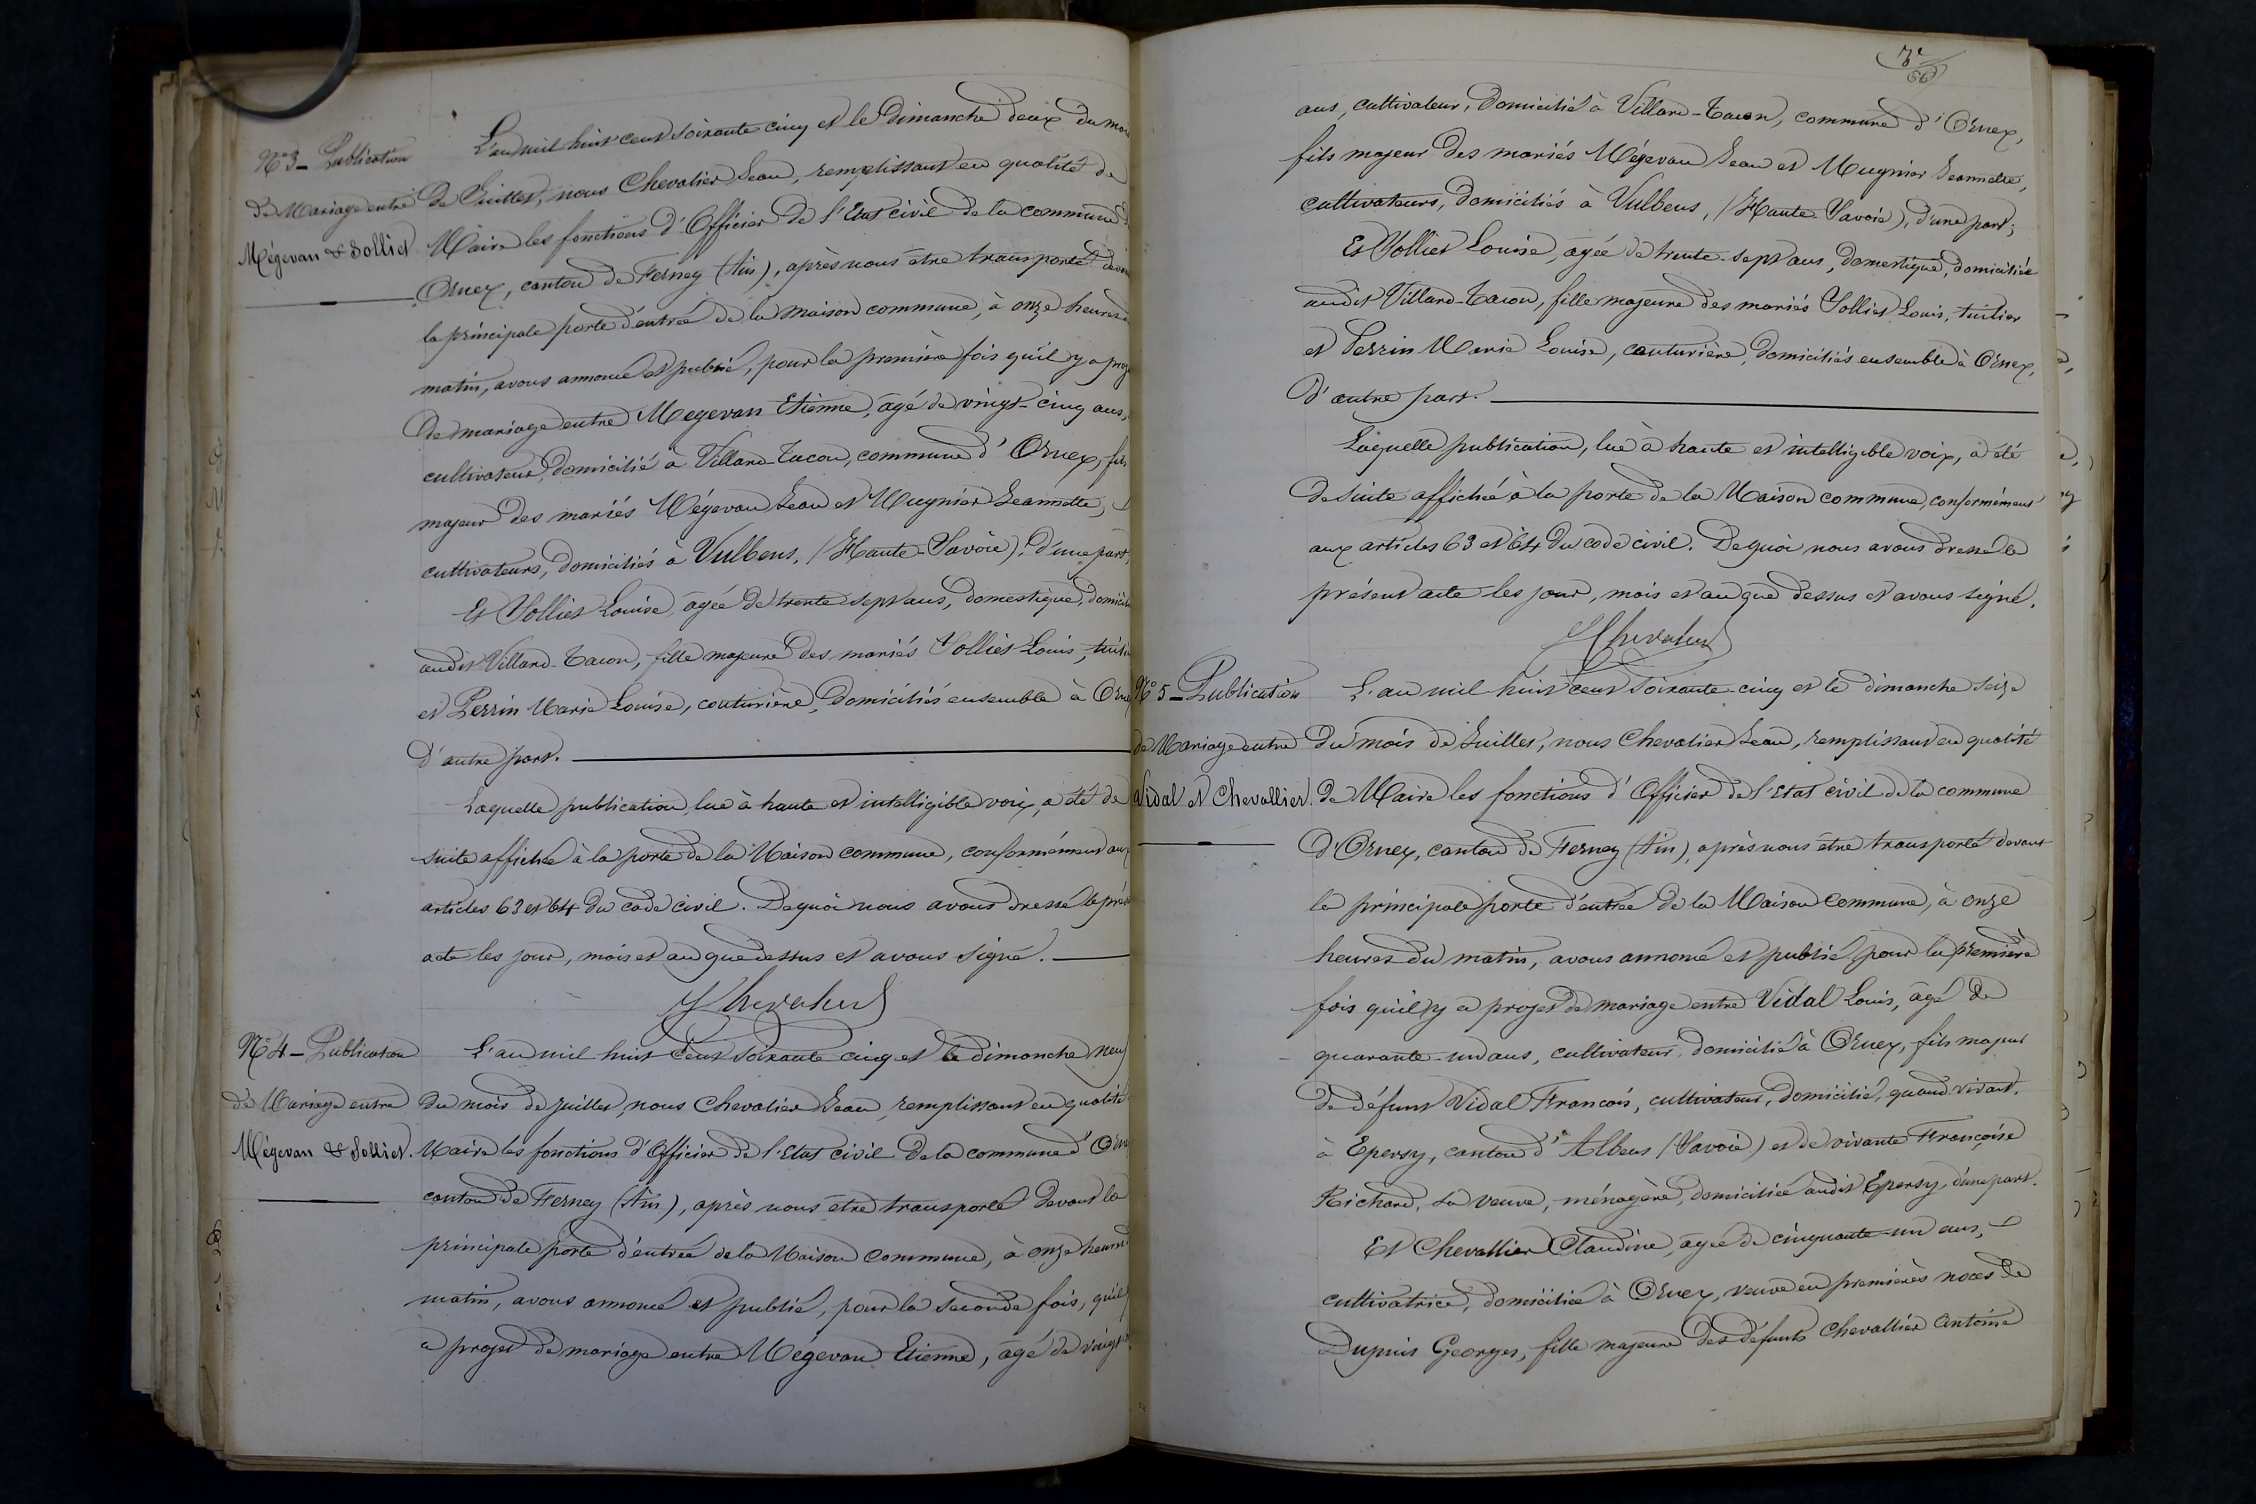 N° 3 _ Publication
de Mariage entre
Mégevan & Solliet
L'an mil huit cent soixante cinq et le Dimanche deux du mois
de Juillet, nous Chevalier Jean, remplissant en qualité de
Maire les fonctions d'Officier de l'Etat civil de la commune d'
Ornex, canton de Ferney (Ain), après nous être transporté devant
la principale porte d'entrée de la maison commune, à onze heures
matin, avons annoncé et publié, pour la première fois qu'il y a projet
de mariage entre Megevan Etienne, âgé de vingt-cinq ans,
cultivateur, domicilié à Villard-Tacon, commune d'Ornex, fils
majeur des mariés Mégevan Jean et Mugnier Jeannette,
cultivateurs, domiciliés à Vulbens, (Haute-Savoie), d'une part,
Et Solliet Louise, âgée de trente-sept ans, domestique, domiciliée
audit Villard-Tacon, fille majeure des mariés Solliet Louis, tuilier
et Perrin Marie Louise, couturière, domiciliés ensemble à Ornex
d'autre part.
Laquelle publication, lue à haute et intelligible voix, a été de
suite affichée à la porte de la Maison commune, conformément aux
articles 63 et 64 du code civil. De quoi nous avons dressé le présent
acte les jour, mois et an que dessus et avons signé.
J Chevalier
N° 4 _ Publication
de Mariage entre
Mégevan & Solliet.
L'an mil huit cent soixante cinq et le dimanche neuf
du mois de juillet nous Chevalier Jean, remplissant en qualité
Maire les fonctions d'Officier de l'Etat civil de la commune d'Ornex
canton de Ferney (Ain), après nous être transporté devant la
principale porte d'entrée de la Maison commune, à onze heures
matin, avons annoncé et publié, pour la seconde fois, qu'il y
a projet de mariage entre Mégevan Etienne, âgé de vingt-
7e
66
ans, cultivateur, domicilié à Villard-Tacon, commune d'Ornex,
fils majeur des mariés Mégevan Jean et Mugnier Jeannette,
cultivateurs, domiciliés à Vulbens, (Haute Savoie), d'une part;
Et Solliet Louise, âgée de trente-sept ans, domestique, domiciliée
audit Villard-Tacon, fille majeure des mariés Solliet Louis, tuilier
et Perrin Marie Louise, couturière, domiciliés ensemble à Ornex,
d'autre part.
Laquelle publication, lue à haute et intelligible voix, a été
de suite affichée à la porte de la Maison commune, conformément
aux articles 63 et 64 du code civil. De quoi nous avons dressé le
présent acte les jour, mois et an que dessus et avons signé.
J Chevalier
N° 5 _ Publication
de Mariage entre
Vidal et Chevallier.
L'an mil huit cent soixante-cinq et le dimanche seize
du mois de Juillet, nous Chevalier Jean, remplissant en qualité
de Maire les fonctions d'Officier de l'Etat civil de la commune
d'Ornex, canton de Ferney (Ain), après nous être transporté devant
la principale porte d'entrée de la Maison commune, à onze
heures du matin, avons annoncé et publié pour la première
fois qu'il y a projet de mariage entre Vidal Louis, âgé de
quarante-un ans, cultivateur, domicilié à Ornex, fils majeur
de défunt Vidal François, cultivateur, domicilié, quand vivant,
à Epersy, canton d'Albens (Savoie) et de vivante Françoise
Richard, sa veuve, ménagère, domiciliée audit Epersy, d'une part.
Et Chevallier Claudine, âgée de cinquante-un ans,
cultivatrice, domiciliée à Ornex, veuve en premières noces de
Dupuis Georges, fille majeure des défunts Chevallier Antoine